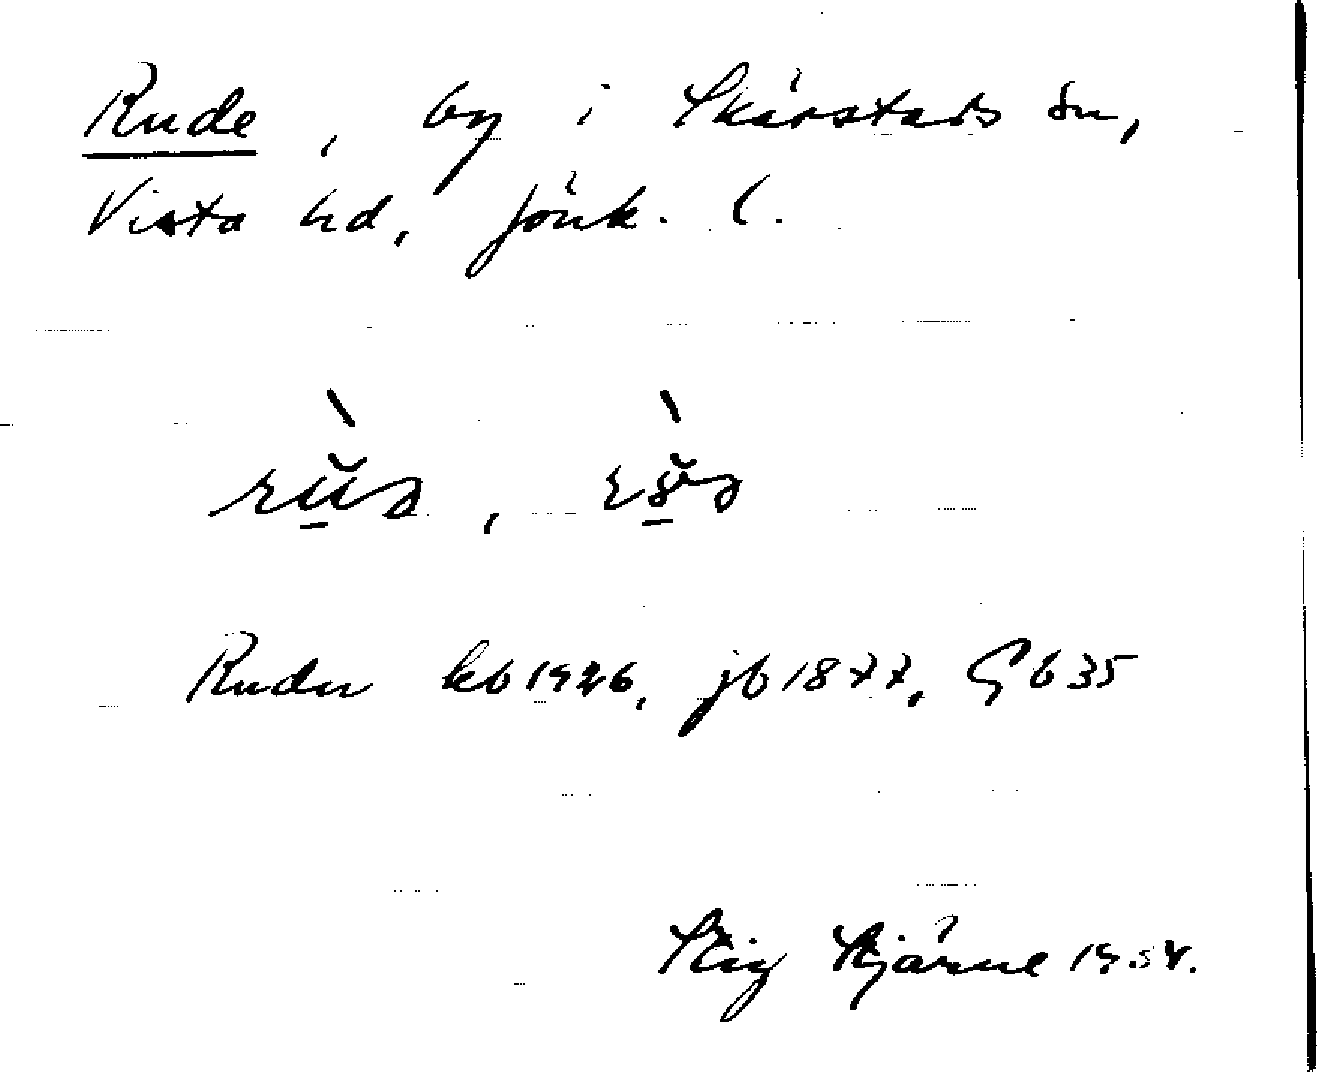 Rude, by i Skärstads sn,
Vista hd, Jönk. l.
Ruder kb 1926, jb 1877, Gb 35
Stig Stjärne 1954.